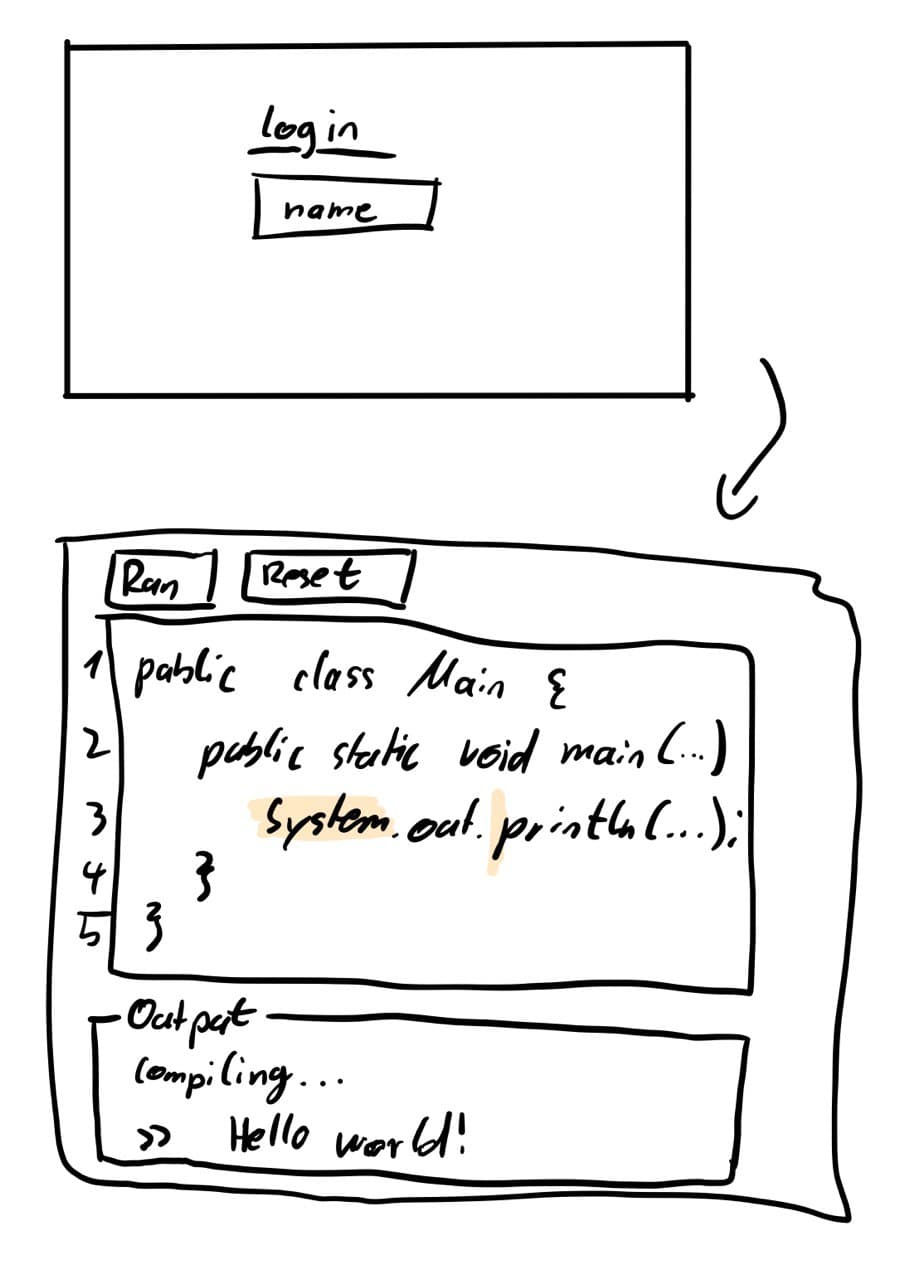 login
name
Run Reset
1 public class Main {
2 public static void main(...)
3 System.out.println(...);
4 }
5 }
Output
Compiling...
>> Hello world!